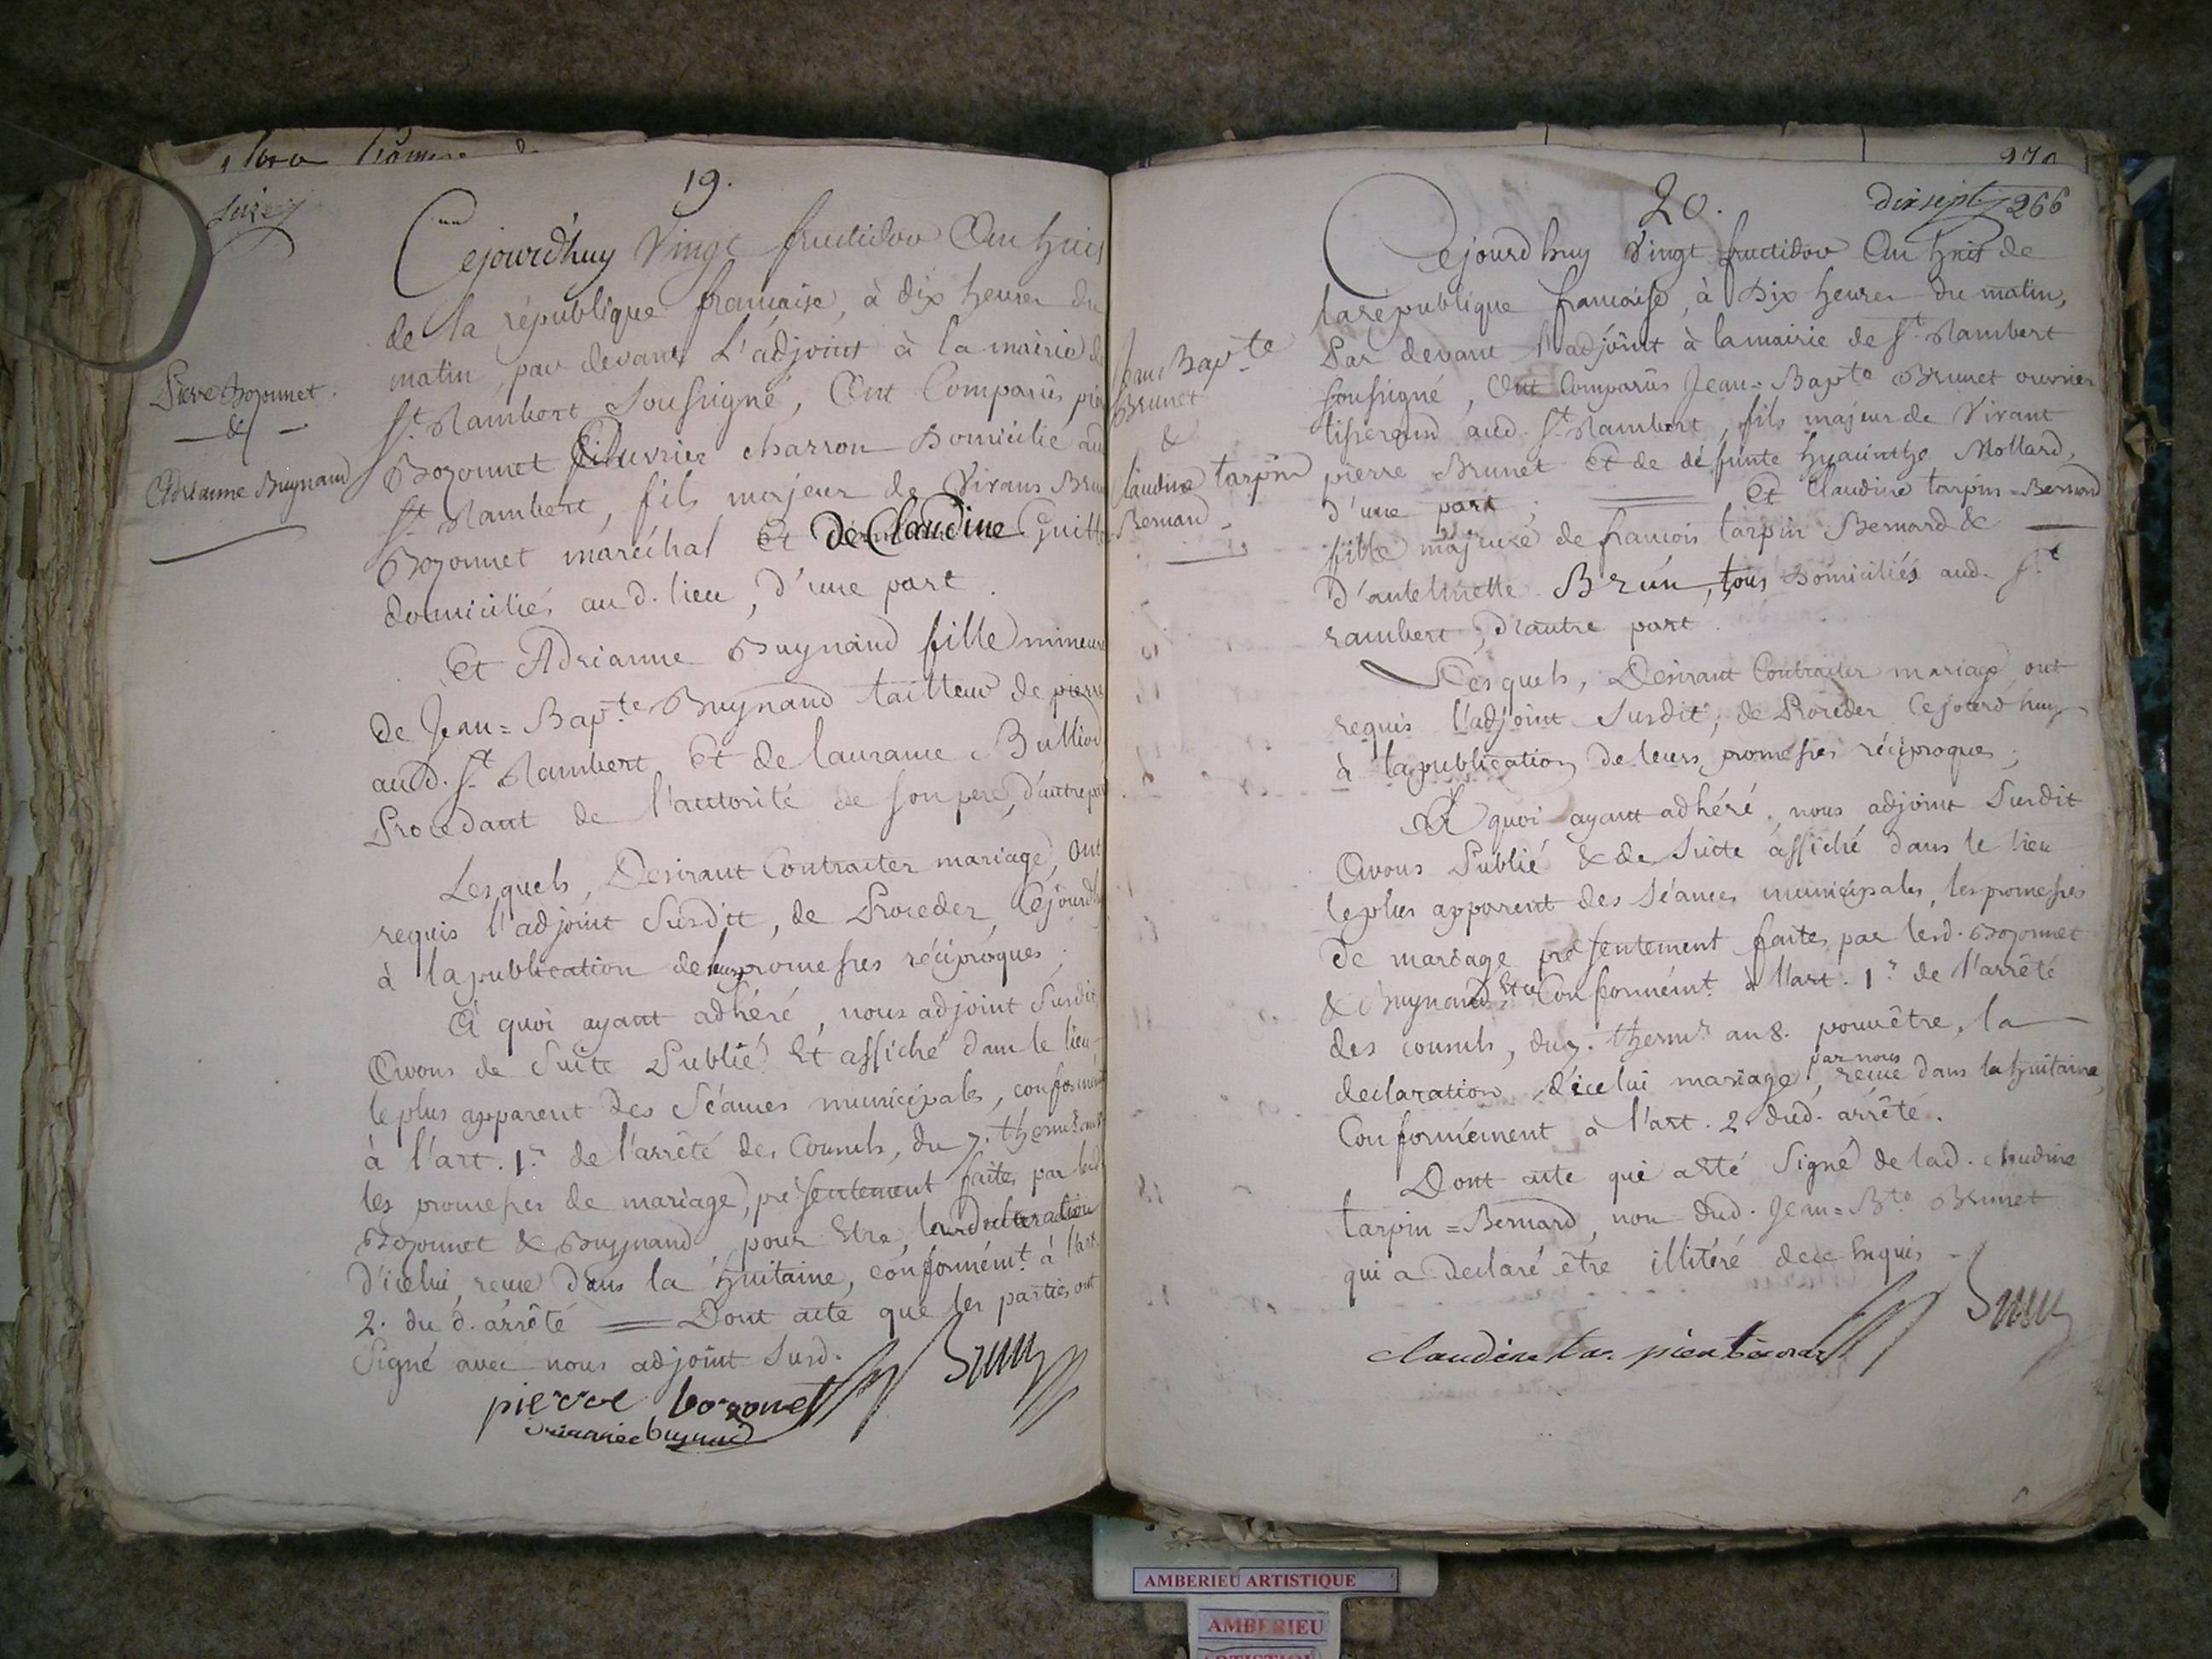 19.
Seize
Cejourd'huy Vingt fructidor An huit
de la république francaise, à dix heures du
matin, par devant L'adjoint à la mairie de
Pierre Bozonnet
&
Adrianne Buynand
St. Rambert Soussigné, Ont Comparüs pie
Bozonnet ouvrier charron Domicilié aud
St. Rambert, fils majeur de Vivans
Bozonnet maréchal Et de Claudine Guitt
domiciliés au d. lieu, d'une part.
Et Adrianne Buynand fille mineure
de Jean=Bapte. Buynand tailleur de pierre
aud. St. Rambert Et de laurance Bulliod
Procedant de l'autorité de son pere, d'autre part
Lesquels, Desirant Contracter mariage, Ont
requis l'adjoint Susdit, de Proceder, Cejourdh
à la publication de leurs promesses réciproques;
A quoi ayant adhéré, nous adjoint Susdit,
Avons de Suite Publié Et affiché dans le lieu
le plus apparent des Séances municipales, conformémt
à l'art. 1er. de l'arrêté des Consuls, du 7. thermr. an 8
les promesses de mariage, présentement faites par lesd
Bozonnet & Buynand, pour Etre, leur declaration
d'icelui, recue dans la huitaine, conformémt. à l'art.
2. du d. arrêté = Dont acte que les parties ont
Signé avec nous adjoint Susd.
pierre bozonnet
Brun
adrianne buynand
20.
dix sept
266
Cejourd'huy Vingt fructidor An huit de
la république francaise, à Dix heures du matin,
Par devant l'adjoint à la mairie de St. Rambert
Jean Bapte
Brunet
&
Claudine tarpin
Bernard
soussigné, Ont Comparüs Jean=Bapte Brunet ouvrier
tisserand aud. St. Rambert, fils majeur de Vivant
pierre Brunet Et de défunte hyacinthe Mollard,
d'une part; = Et Claudine tarpin=Bernard
fille majeure de francois tarpin Bernard &
d'anthelmette Brun, tous Domiciliés aud. St.
rambert, d'autre part.
Lesquels, Desirant Contracter mariage, ont
requis l'adjoint Susdit, de Proceder Cejourd'huy
à la publication de leurs promesses réciproques;
A quoi ayant adhéré, nous adjoint Susdit
Avons Publié & de Suite affiché dans le lieu
le plus apparent des Séances municipales, les promesses
de mariage présentement faites par lesd. Bozonnet
& Buynand, Et ce Conformémt. à l'art. 1er. de l'arrêté
des consuls, du 7. thermr. an 8. pour être, la
declaration d'icelui mariage, par nous recue dans la huitaine,
Conformément à l'art. 2. dud. arrêté.
Dont acte qui a été Signé de lad. claudine
tarpin=Bernard, non dud. Jean=Bte. Brunet
qui a declaré être illitéré de ce Enquis
Brun
claudine tarpien bernar
AMBERIEU ARTISTIQUE
AMBERIEU
ARTISTIQUE